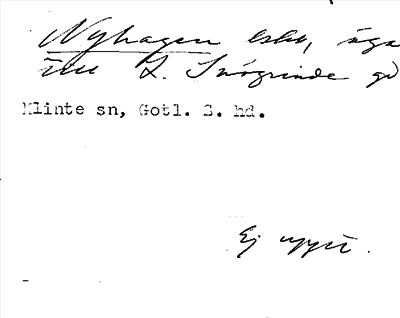 Nyhagen
till L. Snögrinde gd
Klinte sn, Gotl. S. hd.
Ej uppt.